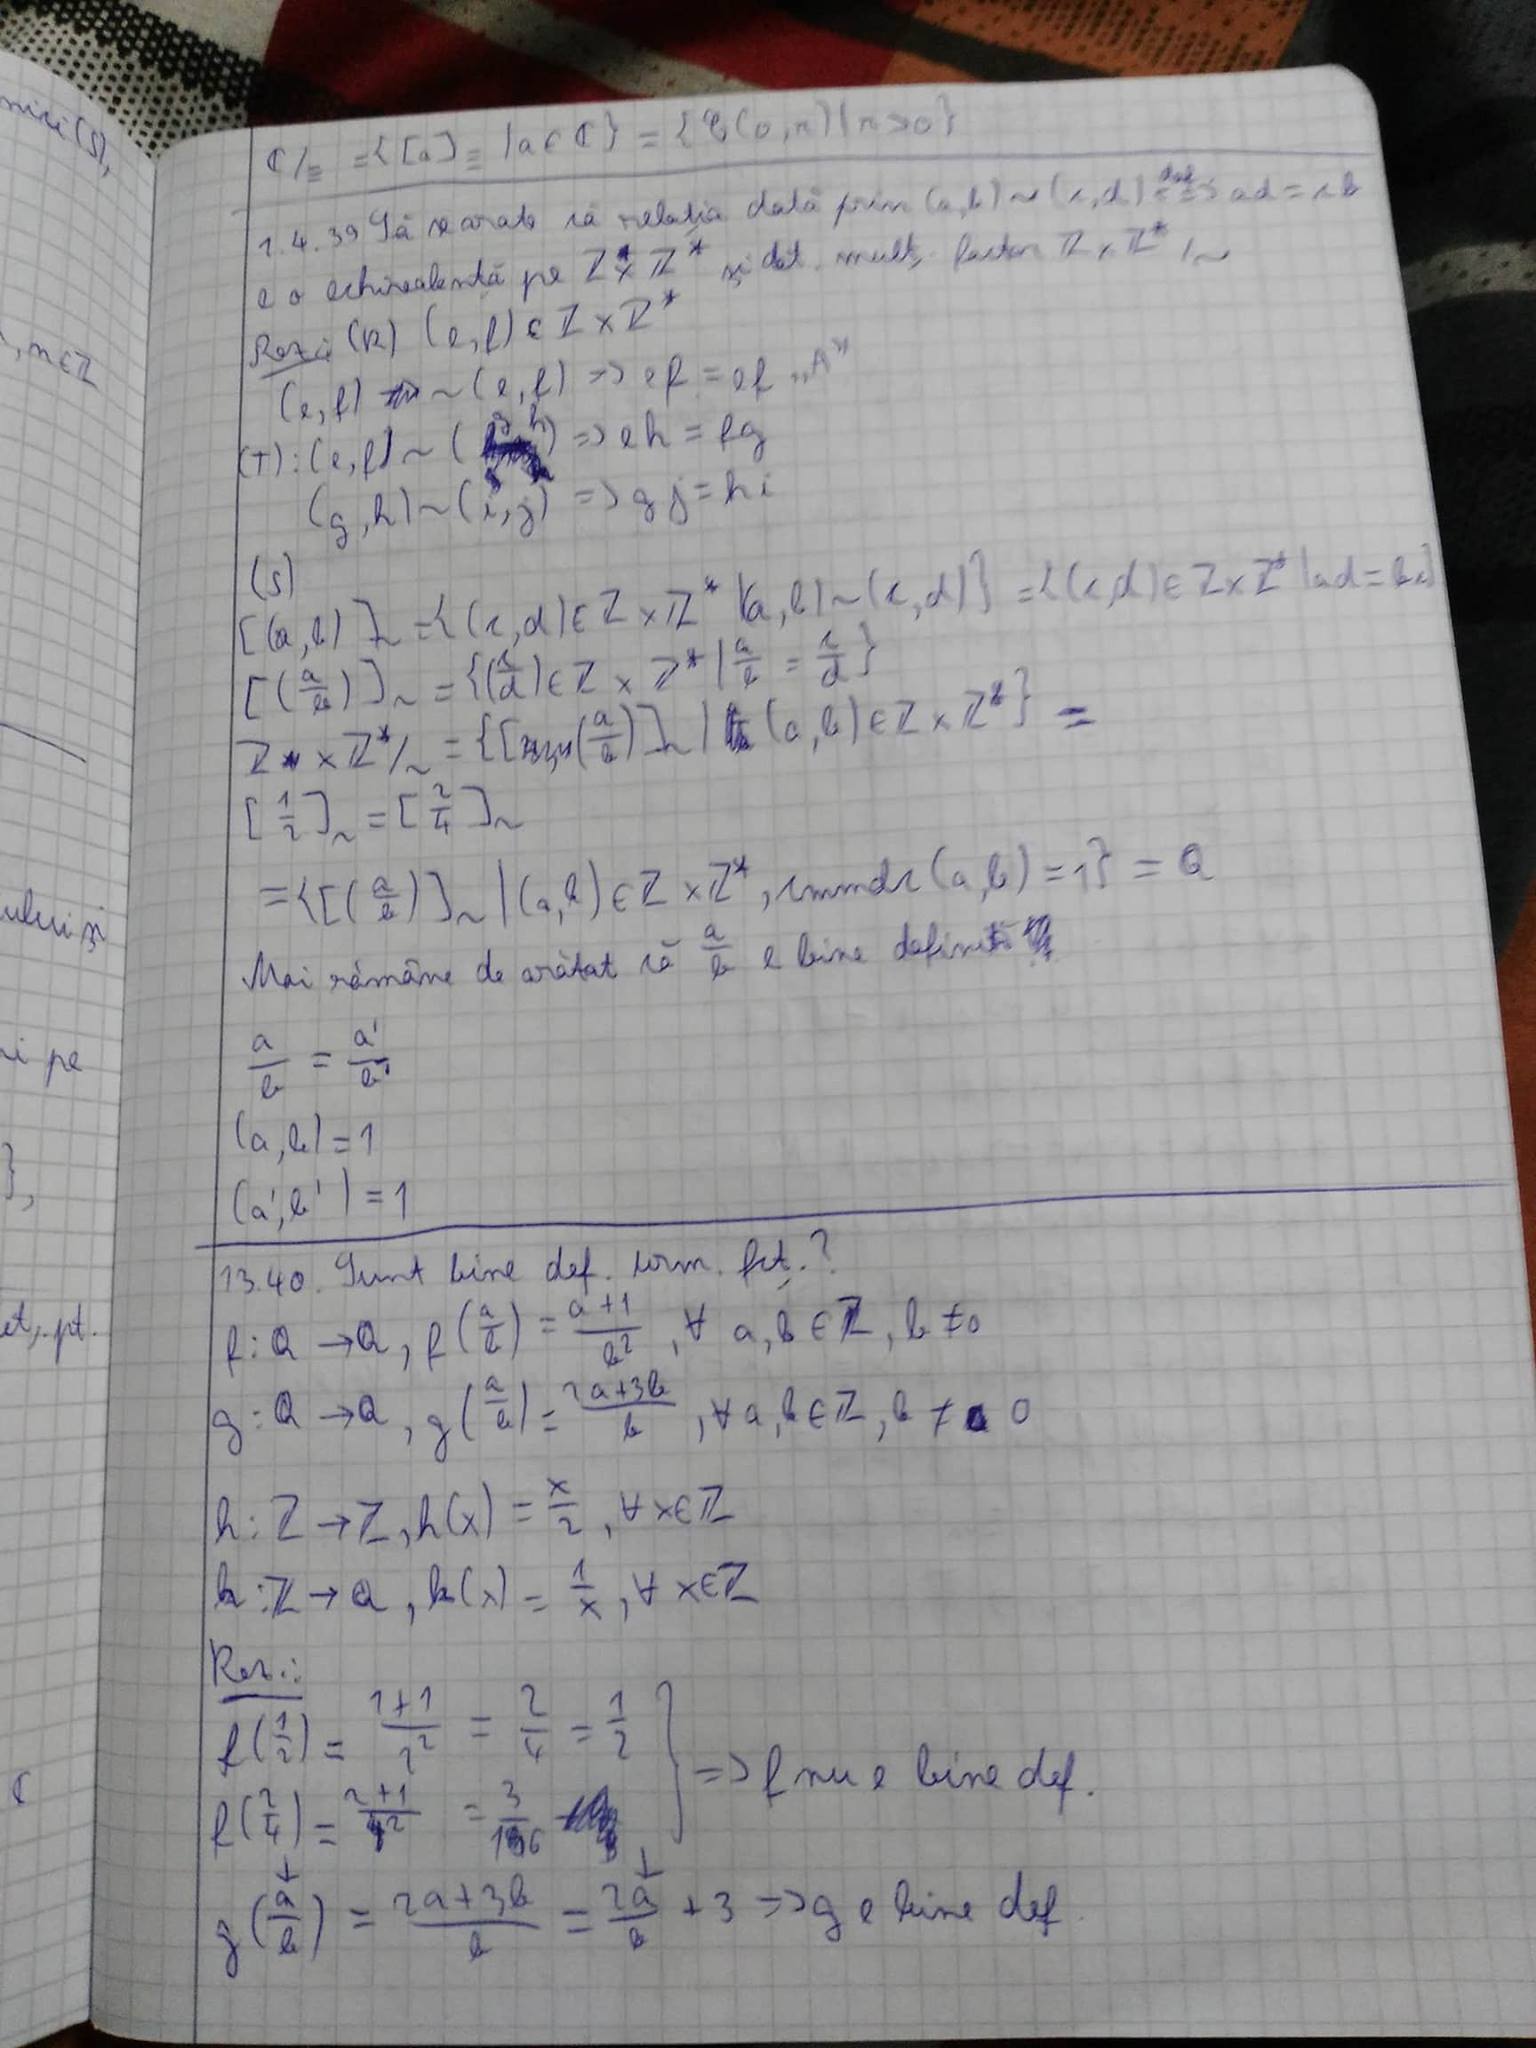 nici (S),
, n∈ℤ
ului și
i pe
},
et, pt.
ℂ/≡ = {[a]≡ | a∈ℂ} = {𝒞(0,r) | r>0}
1.4.39 Să se arate că relația dată prin (a,b) ~ (c,d) <=def=> ad = cb
e o echivalență pe ℤ × ℤ* și det. mulț. factor ℤ × ℤ* /~
Rez.: (R) (e,f) ∈ ℤ × ℤ*
(e,f) ~ (e,f) => ef = ef „A"
(T): (e,f) ~ (g,h) => eh = fg
(g,h) ~ (i,j) => gj = hi
(S)
[(a,b)]~ = {(c,d) ∈ ℤ × ℤ* | (a,b) ~ (c,d)} = {(c,d) ∈ ℤ × ℤ* | ad = bc}
[(a/b)]~ = {(c/d) ∈ ℤ × ℤ* | a/b = c/d}
ℤ × ℤ*/~ = {[(a/b)]~ | (a,b) ∈ ℤ × ℤ*} =
[1/2]~ = [2/4]~
= {[(a/b)]~ | (a,b) ∈ ℤ × ℤ*, cmmdc(a,b) = 1} = Q
Mai rămâne de arătat că a/b e bine definită
a/b = a'/b'
(a,b) = 1
(a',b') = 1
13.40. Sunt bine def. urm. fct.?
f: Q → Q, f(a/b) = (a+1)/b², ∀ a,b ∈ ℤ, b ≠ 0
g: Q → Q, g(a/b) = (2a+3b)/b, ∀ a,b ∈ ℤ, b ≠ 0
h: ℤ → ℤ, h(x) = x/2, ∀ x∈ℤ
k: ℤ → Q, k(x) = 1/x, ∀ x∈ℤ
Rez.:
f(1/2) = (1+1)/2² = 2/4 = 1/2
=> f nu e bine def.
f(2/4) = (2+1)/4² = 3/16
g(a/b) = (2a+3b)/b = 2a/b + 3 => g e bine def.